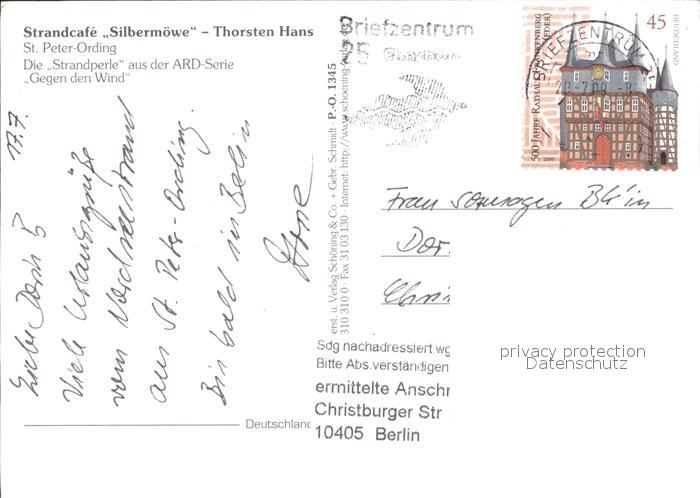 Strandcafé „Silbermöwe" – Thorsten Hans
St. Peter-Ording
Die „Strandperle" aus der ARD-Serie
„Gegen den Wind"
17.7.
Liebe Doris
Viele Urlaubsgrüße
vom Nordseestrand
aus St. Peter-Ording.
Bis bald in Berlin
Deutschland
erst. u. Verlag Schöning & Co. + Gebr. Schmidt · P.-O. 1345
310 310 0 · Fax 31 03 130 · Internet: http://www.schoening-verlag
Briefzentrum
25
BRIEFZENTRUM
500 JAHRE RATHAUS FRANKENBERG
(EDER)
45
DEUTSCHLAND
2009
Frau
Dor
Chri
Sdg nachadressiert wg
Bitte Abs.verständigen
ermittelte Anschr
Christburger Str
10405 Berlin
privacy protection
Datenschutz